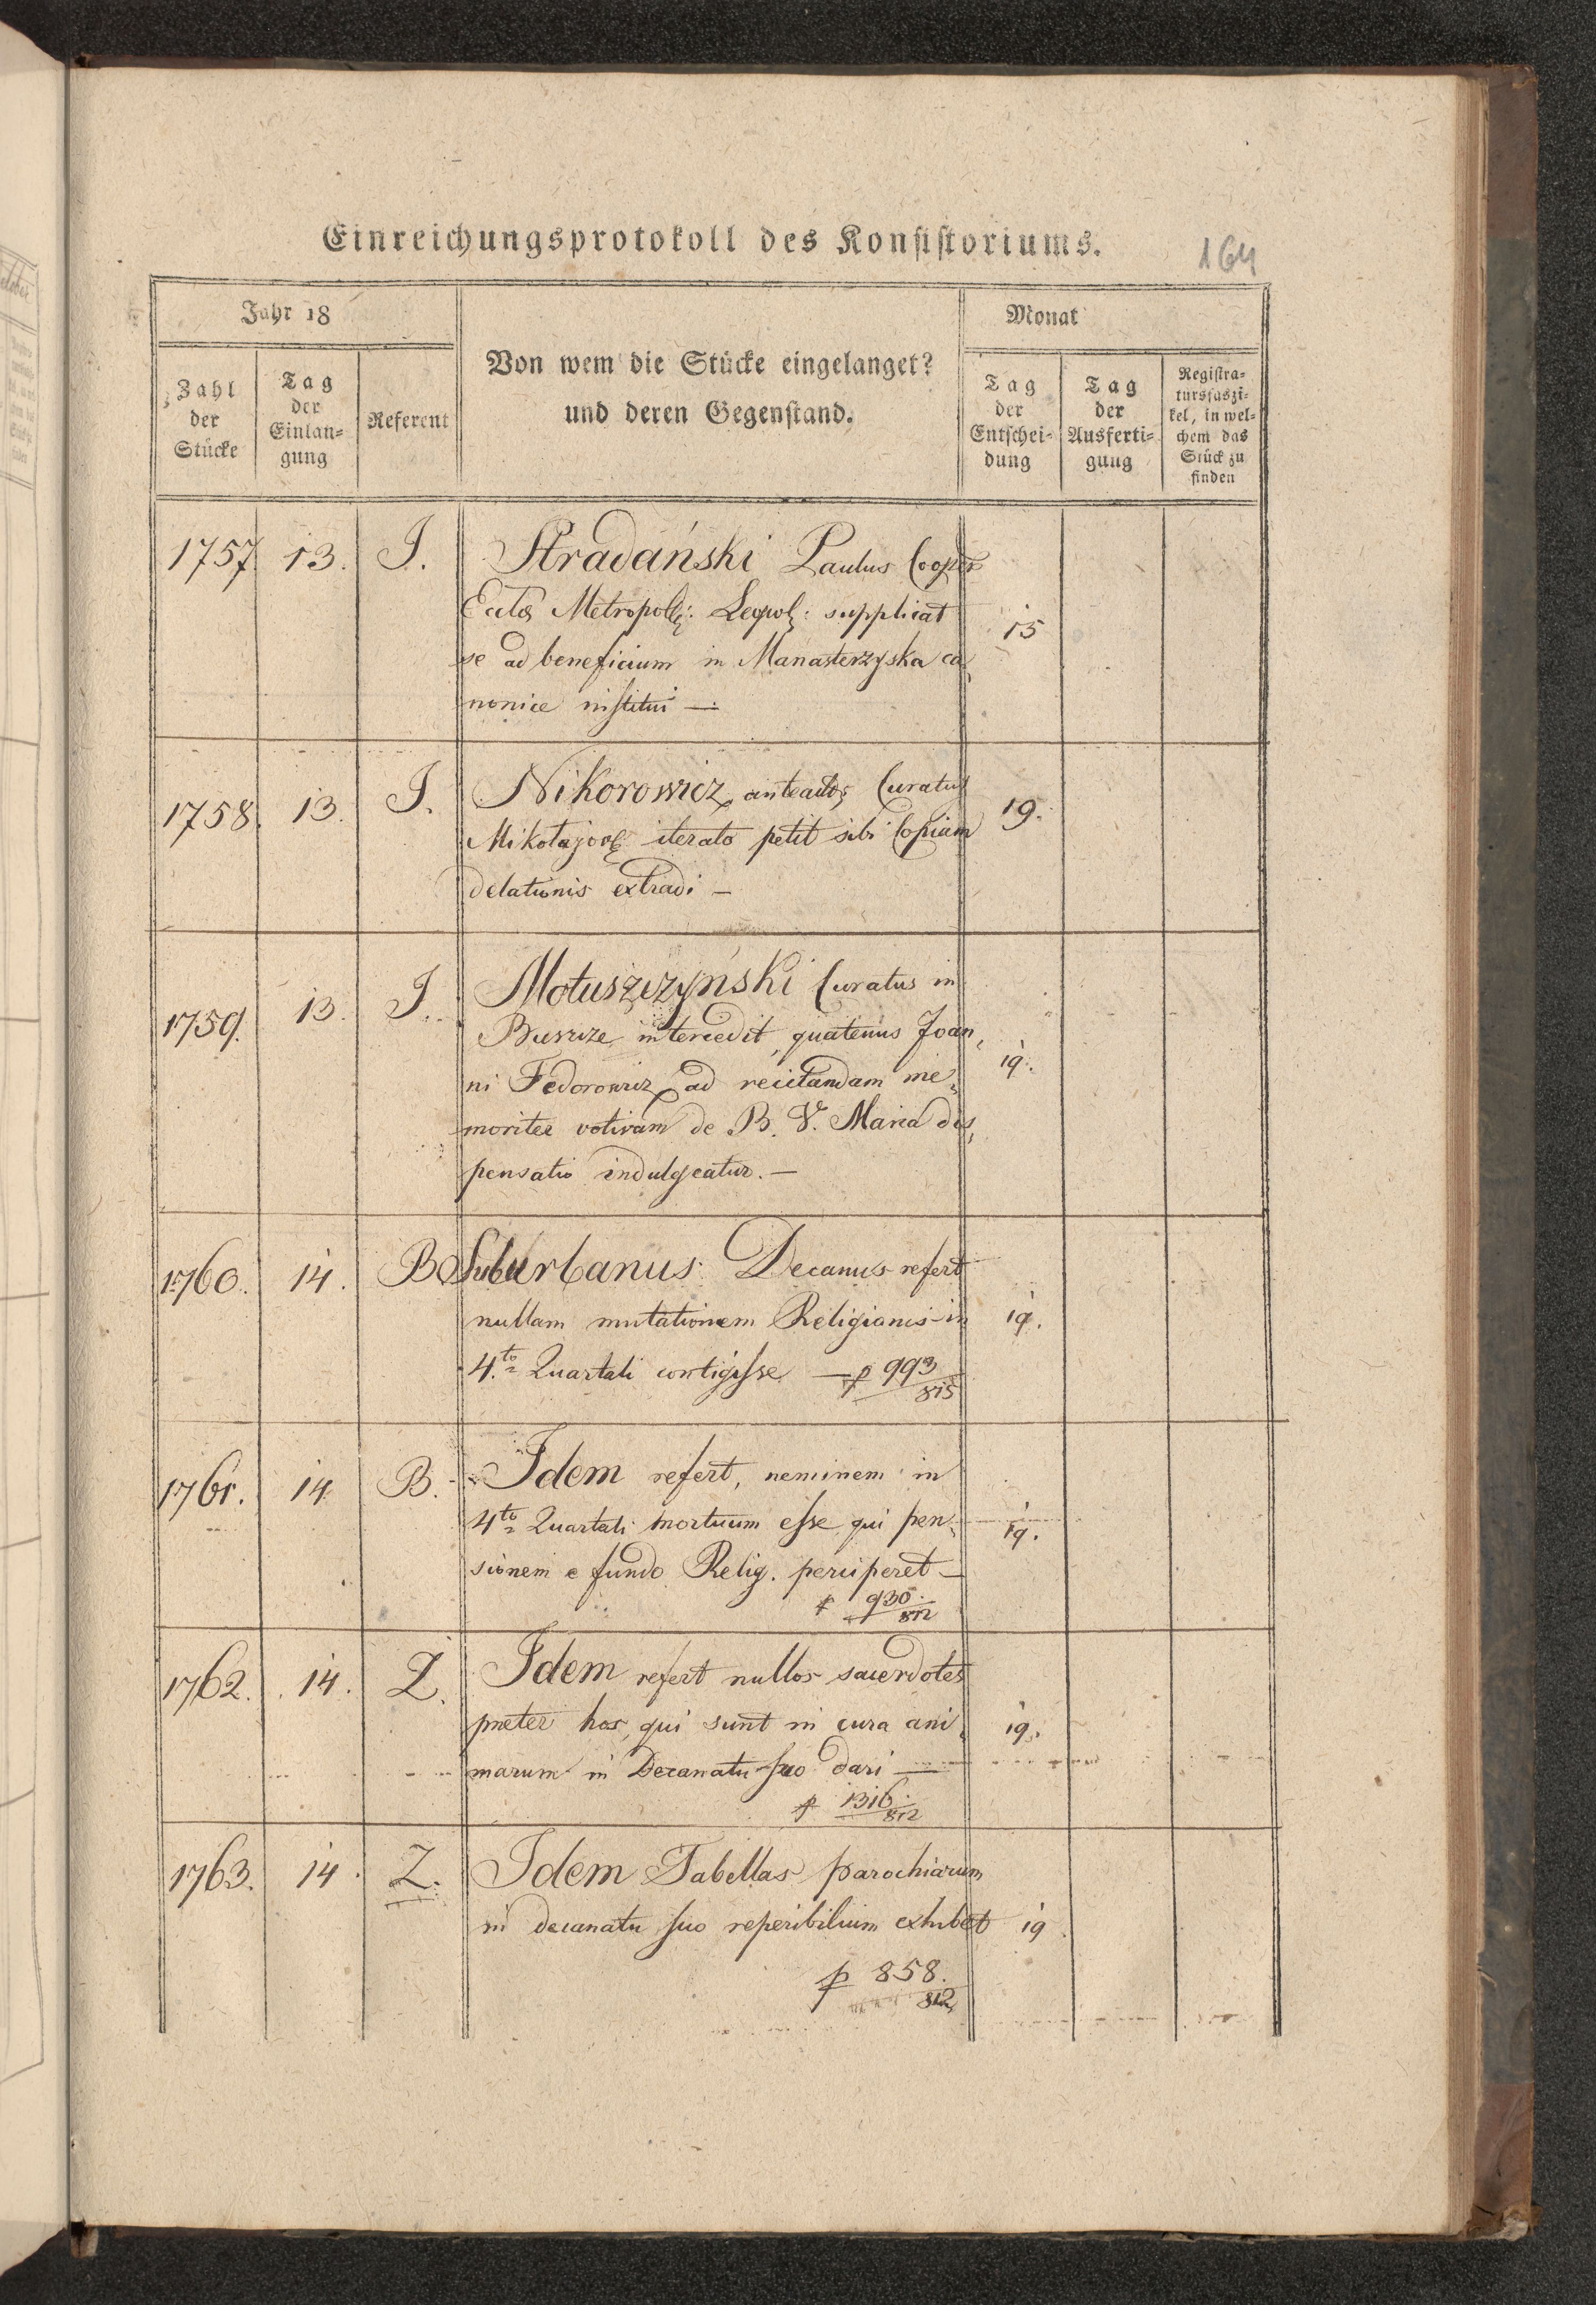 Einreichungsprotokoll des Konsistoriums.
164
Jahr 18
Monat
Zahl der Stücke
Tag der Einlan-gung
Referent
Von wem die Stücke eingelanget?
und deren Gegenstand.
Tag der Entschei-dung
Tag der Ausferti-gung
Registra-tursfaszi-kel, in wel-chem das Stück zu finden
1757. 13. J. Stradański Paulus Coopr
Eccla Metropol: Leopol: supplicat 15
se ad beneficium in Manasterzyska ca
nonice institui —
1758. 13. J. Nikorowicz anteactus Curatus 19.
Mikołajov iterato petit sibi Copiam
delationis extradi —
1759. 13. J. Motuszczyński Curatus in
intercedit, quatenus Joan, 19.
ni Fedorowicz ad recitandam me,
moriter votivam de B. V. Maria dis,
pensatio indulgeatur. —
1760. 14. B Suburbanus Decanus refert
nullam mutationem Religionis in 19.
4.to Quartali contigisse — p 993
815
1761. 14 B. Idem refert, neminem in
4to Quartali mortuum esse qui pen, 19.
sionem e fundo Relig. perciperet —
p 930.
812
1762. 14. Z. Idem refert nullos sacerdotes
praeter hos, qui sunt in cura ani, 19.
marum in Decanatu suo dari —
p 1316.
812
1763. 14. Z. Idem Tabellas parochiarum
in decanatu suo reperibilium exhibet 19
p 858.
812